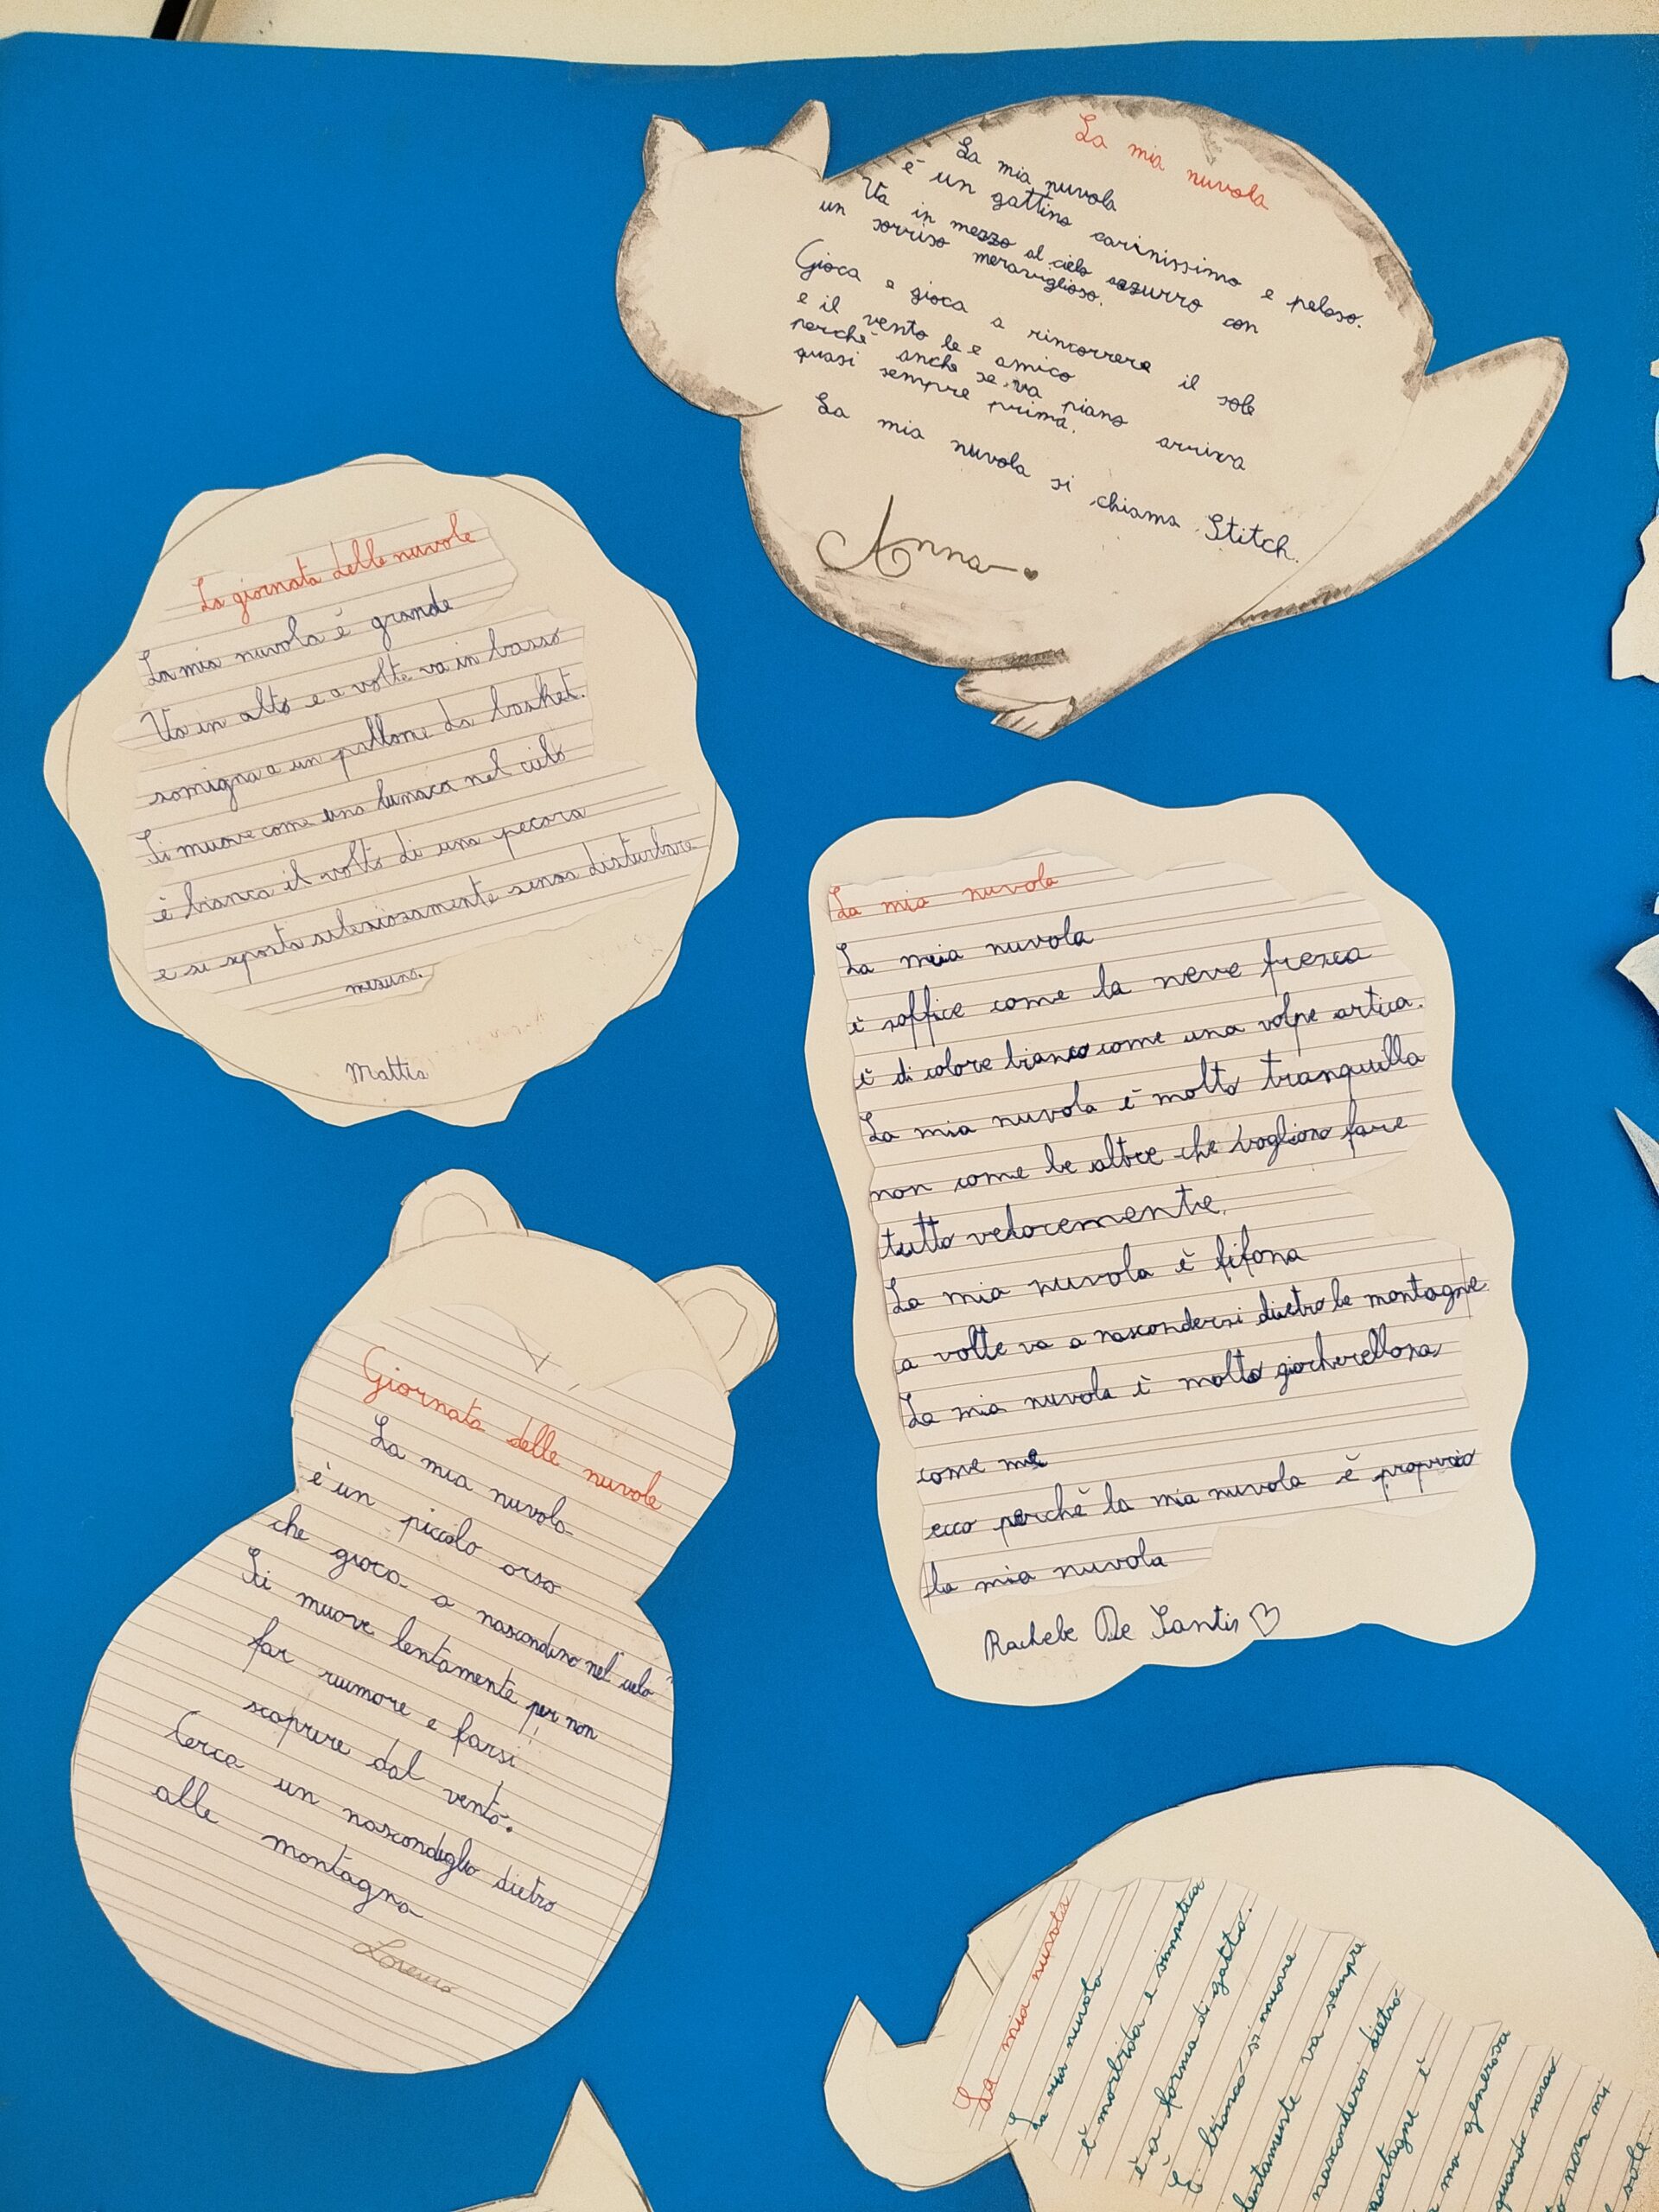 La mia nuvola
La mia nuvola
è un gattino carinissimo e peloso.
Va in mezzo al cielo azzurro con
un sorriso meraviglioso.
Gioca e gioca a rincorrere il sole
e il vento le e amico
perchè anche se va piano arriva
quasi sempre prima.
La mia nuvola si chiama Stitch.
Anna
La giornata delle nuvole
La mia nuvola è grande
Va in alto e a volte va in basso
somigna a un pallone da basket.
Si muove come una lumaca nel cielo
è bianca il volto di una pecora
e si sposta silenziosamente senza disturbare
nessuno.
Mattia
La mia nuvola
La mia nuvola
è soffice come la neve fresca
è di colore bianco come una volpe artica.
La mia nuvola è molto tranquilla
non come le altre che vogliono fare
tutto velocemente.
La mia nuvola è fifona
a volte va a nascondersi dietro le montagne
La mia nuvola è molto giocherellona
come me
ecco perchè la mia nuvola è proprio
la mia nuvola
Rachele De Santis
Giornata delle nuvole
La mia nuvola
è un piccolo orso
che gioca a nascondino nel cielo
Si muove lentamente per non
far rumore e farsi
scoprire dal vento.
Cerca un nascondiglio dietro
alle montagna
Lorenzo
La mia nuvola
La mia nuvola
è morbida e simpatica
è a forma di gatto.
È bianco si muove
lentamente va sempre
nascondersi dietro
montagne è
ma generosa
quando sono
non mi
sole